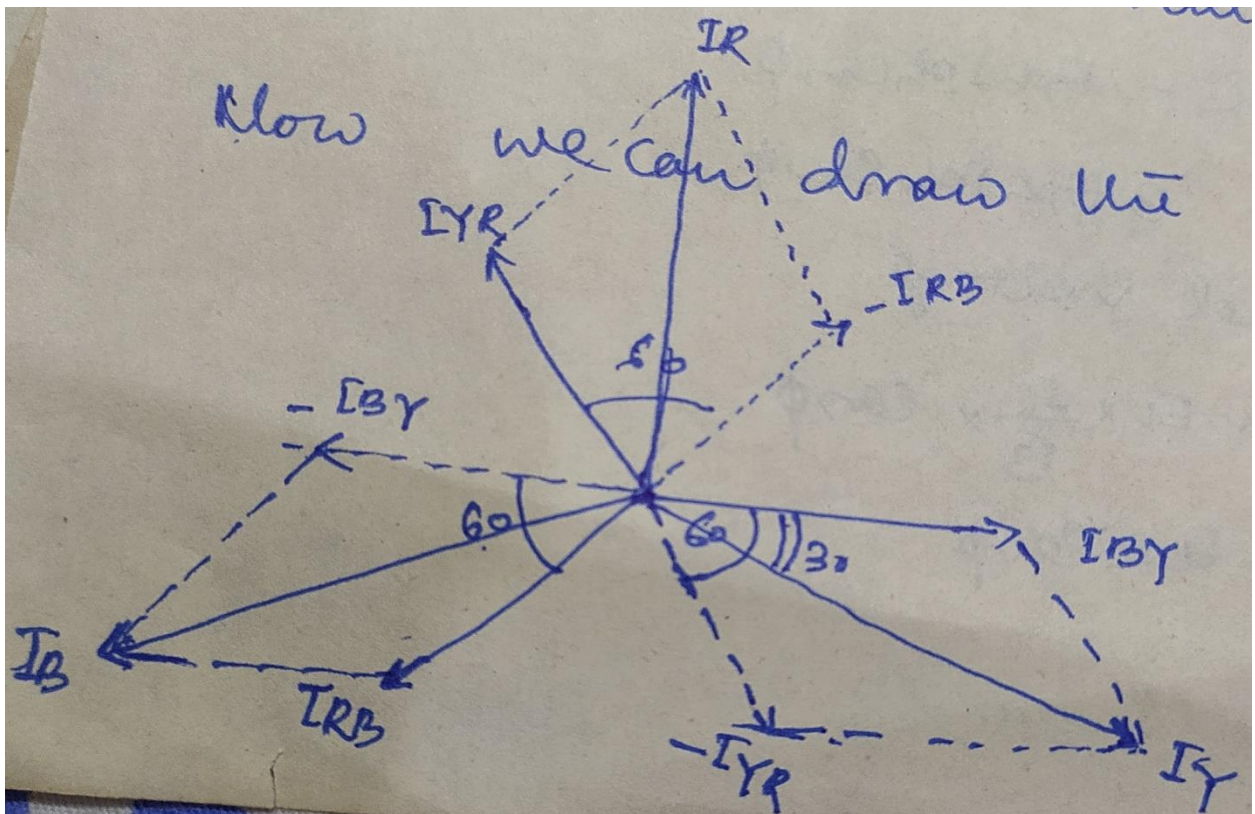 IR
Now we can draw the
IYR
-IRB
60
- IBY
60
60
30
IBY
IB
IRB
-IYR
IY